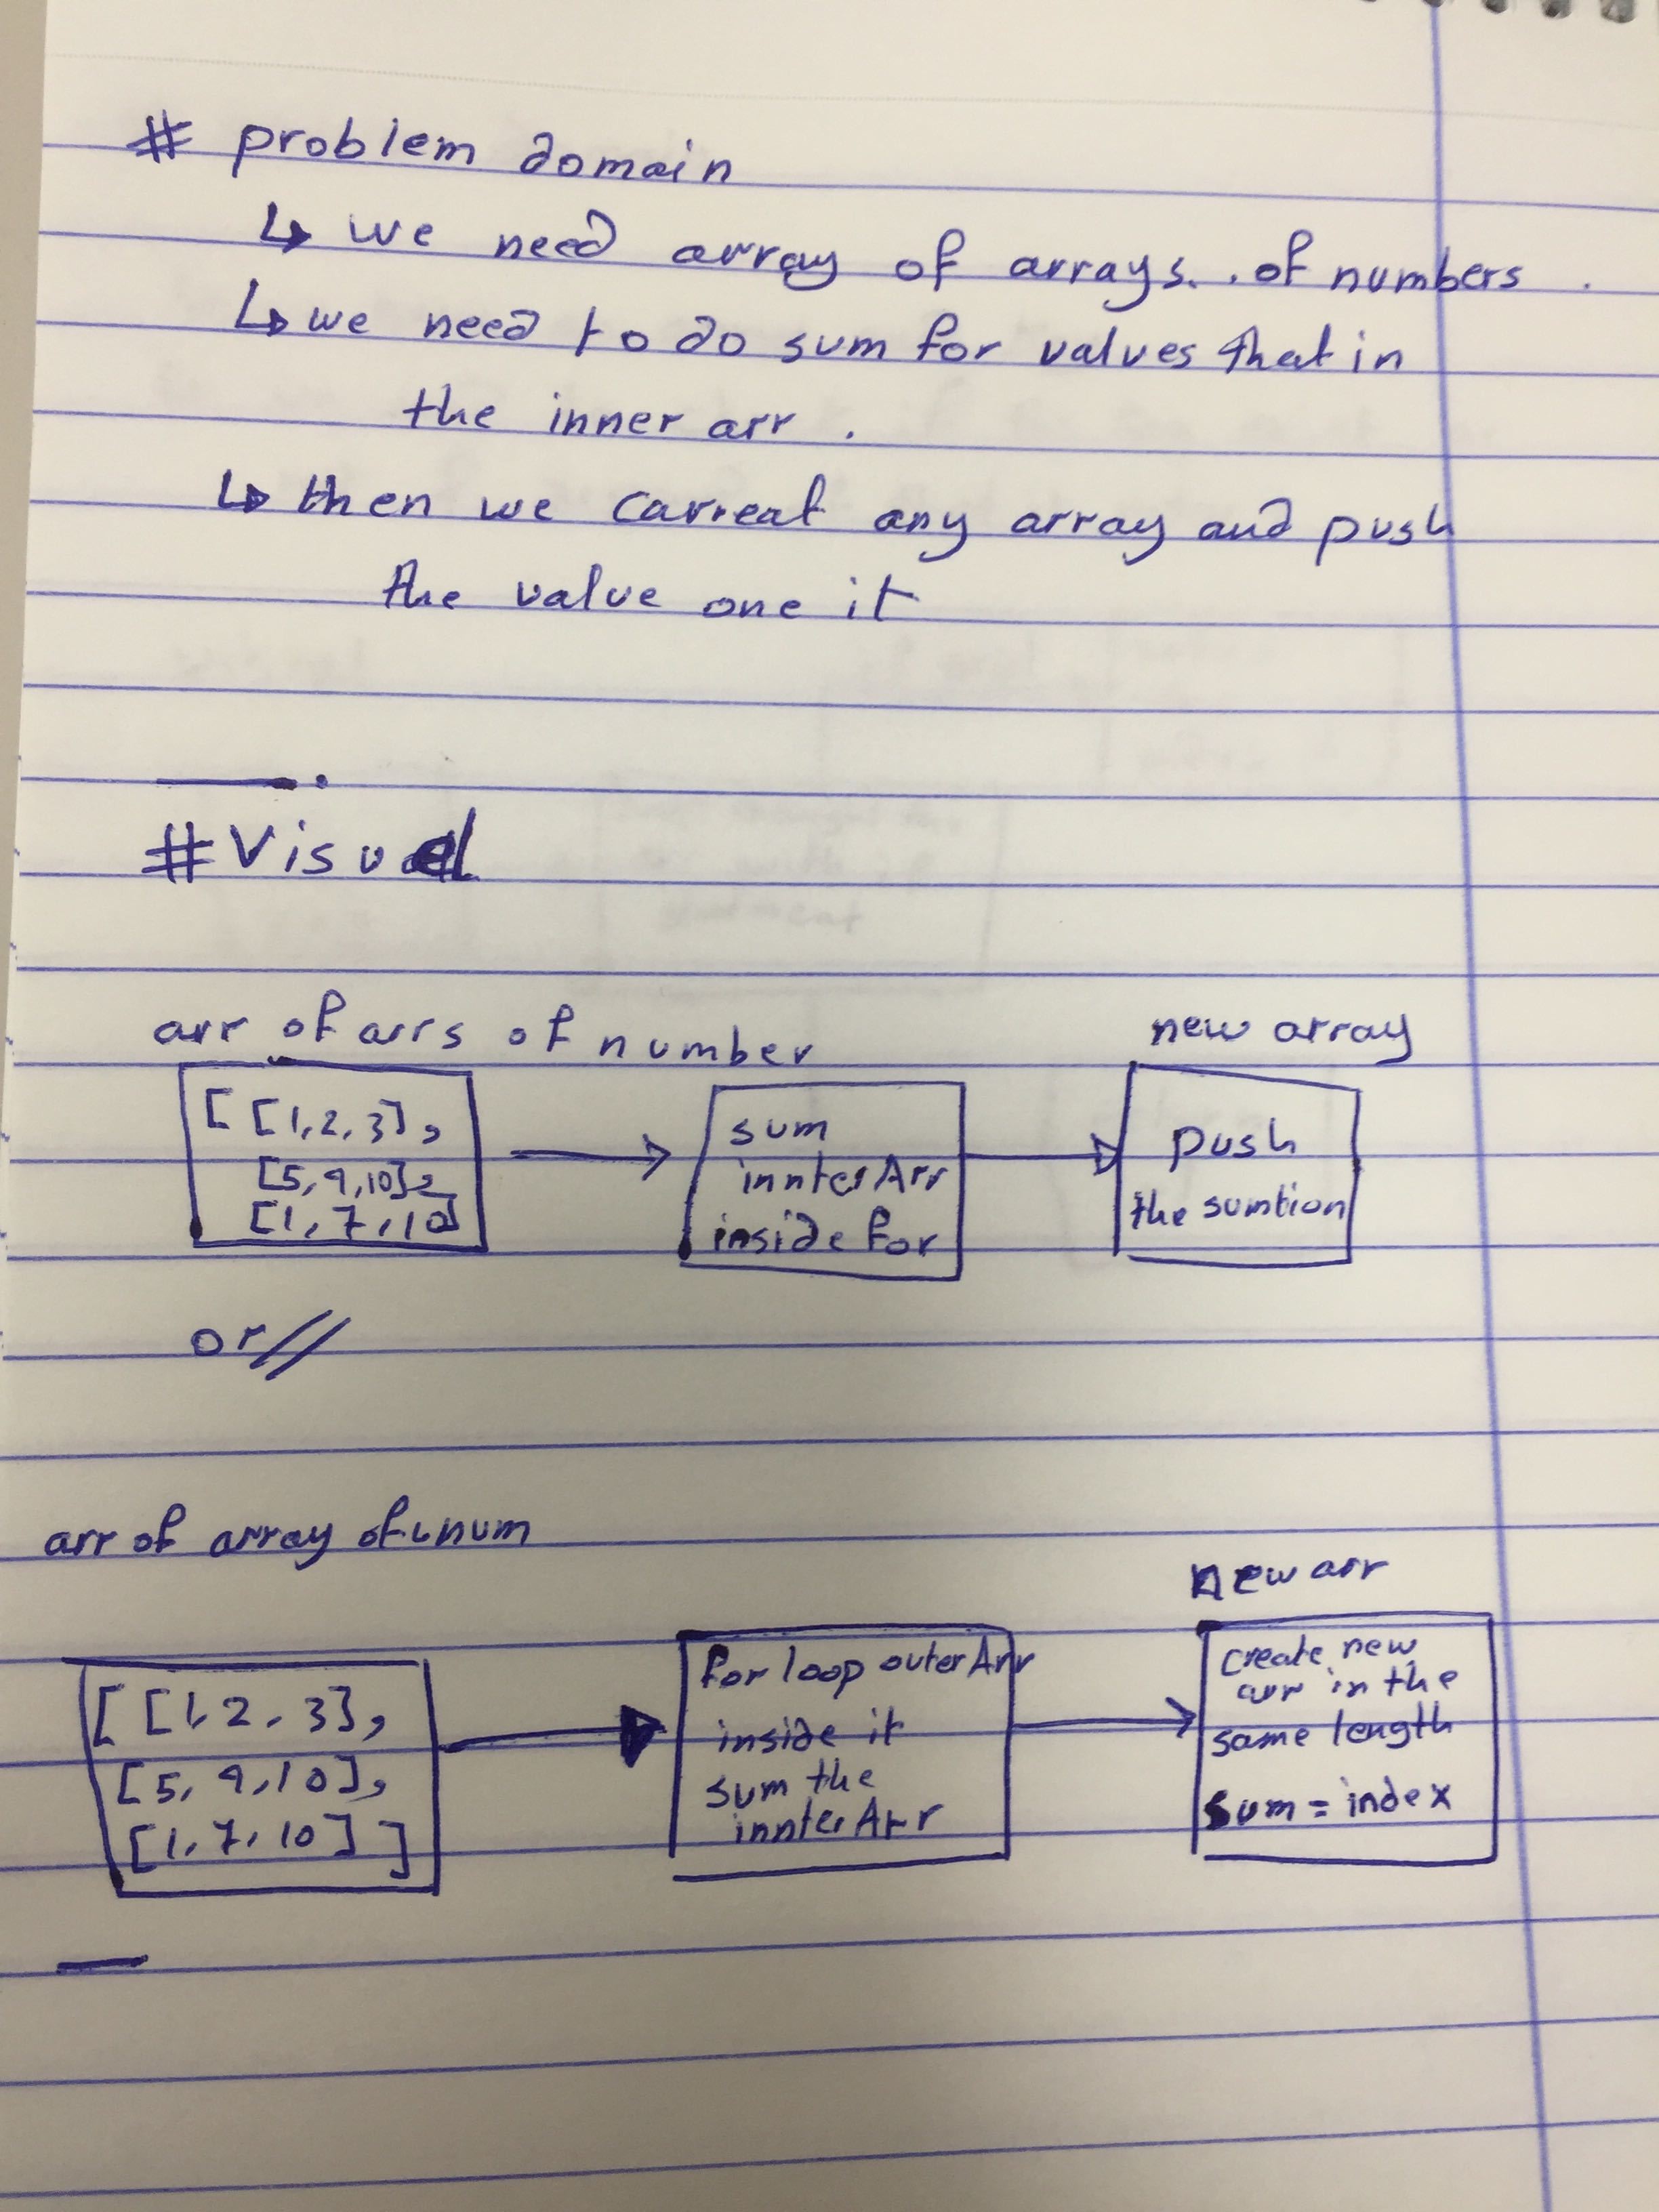 # problem domain
↳ we need array of arrays. . of numbers .
↳ we need to do sum for values that in
the inner arr .
↳ then we carreat any array and push
the value one it
# Visual
arr of arrs of number
new array
[ [1,2,3],
[5,9,10],
[1,7,10]
sum
innterArr
inside for
push
the sumtion
or//
arr of array of num
new arr
[ [1,2,3],
[5,9,10],
[1,7,10] ]
for loop outerArr
inside it
sum the
innterArr
create new
arr in the
same length
sum = index